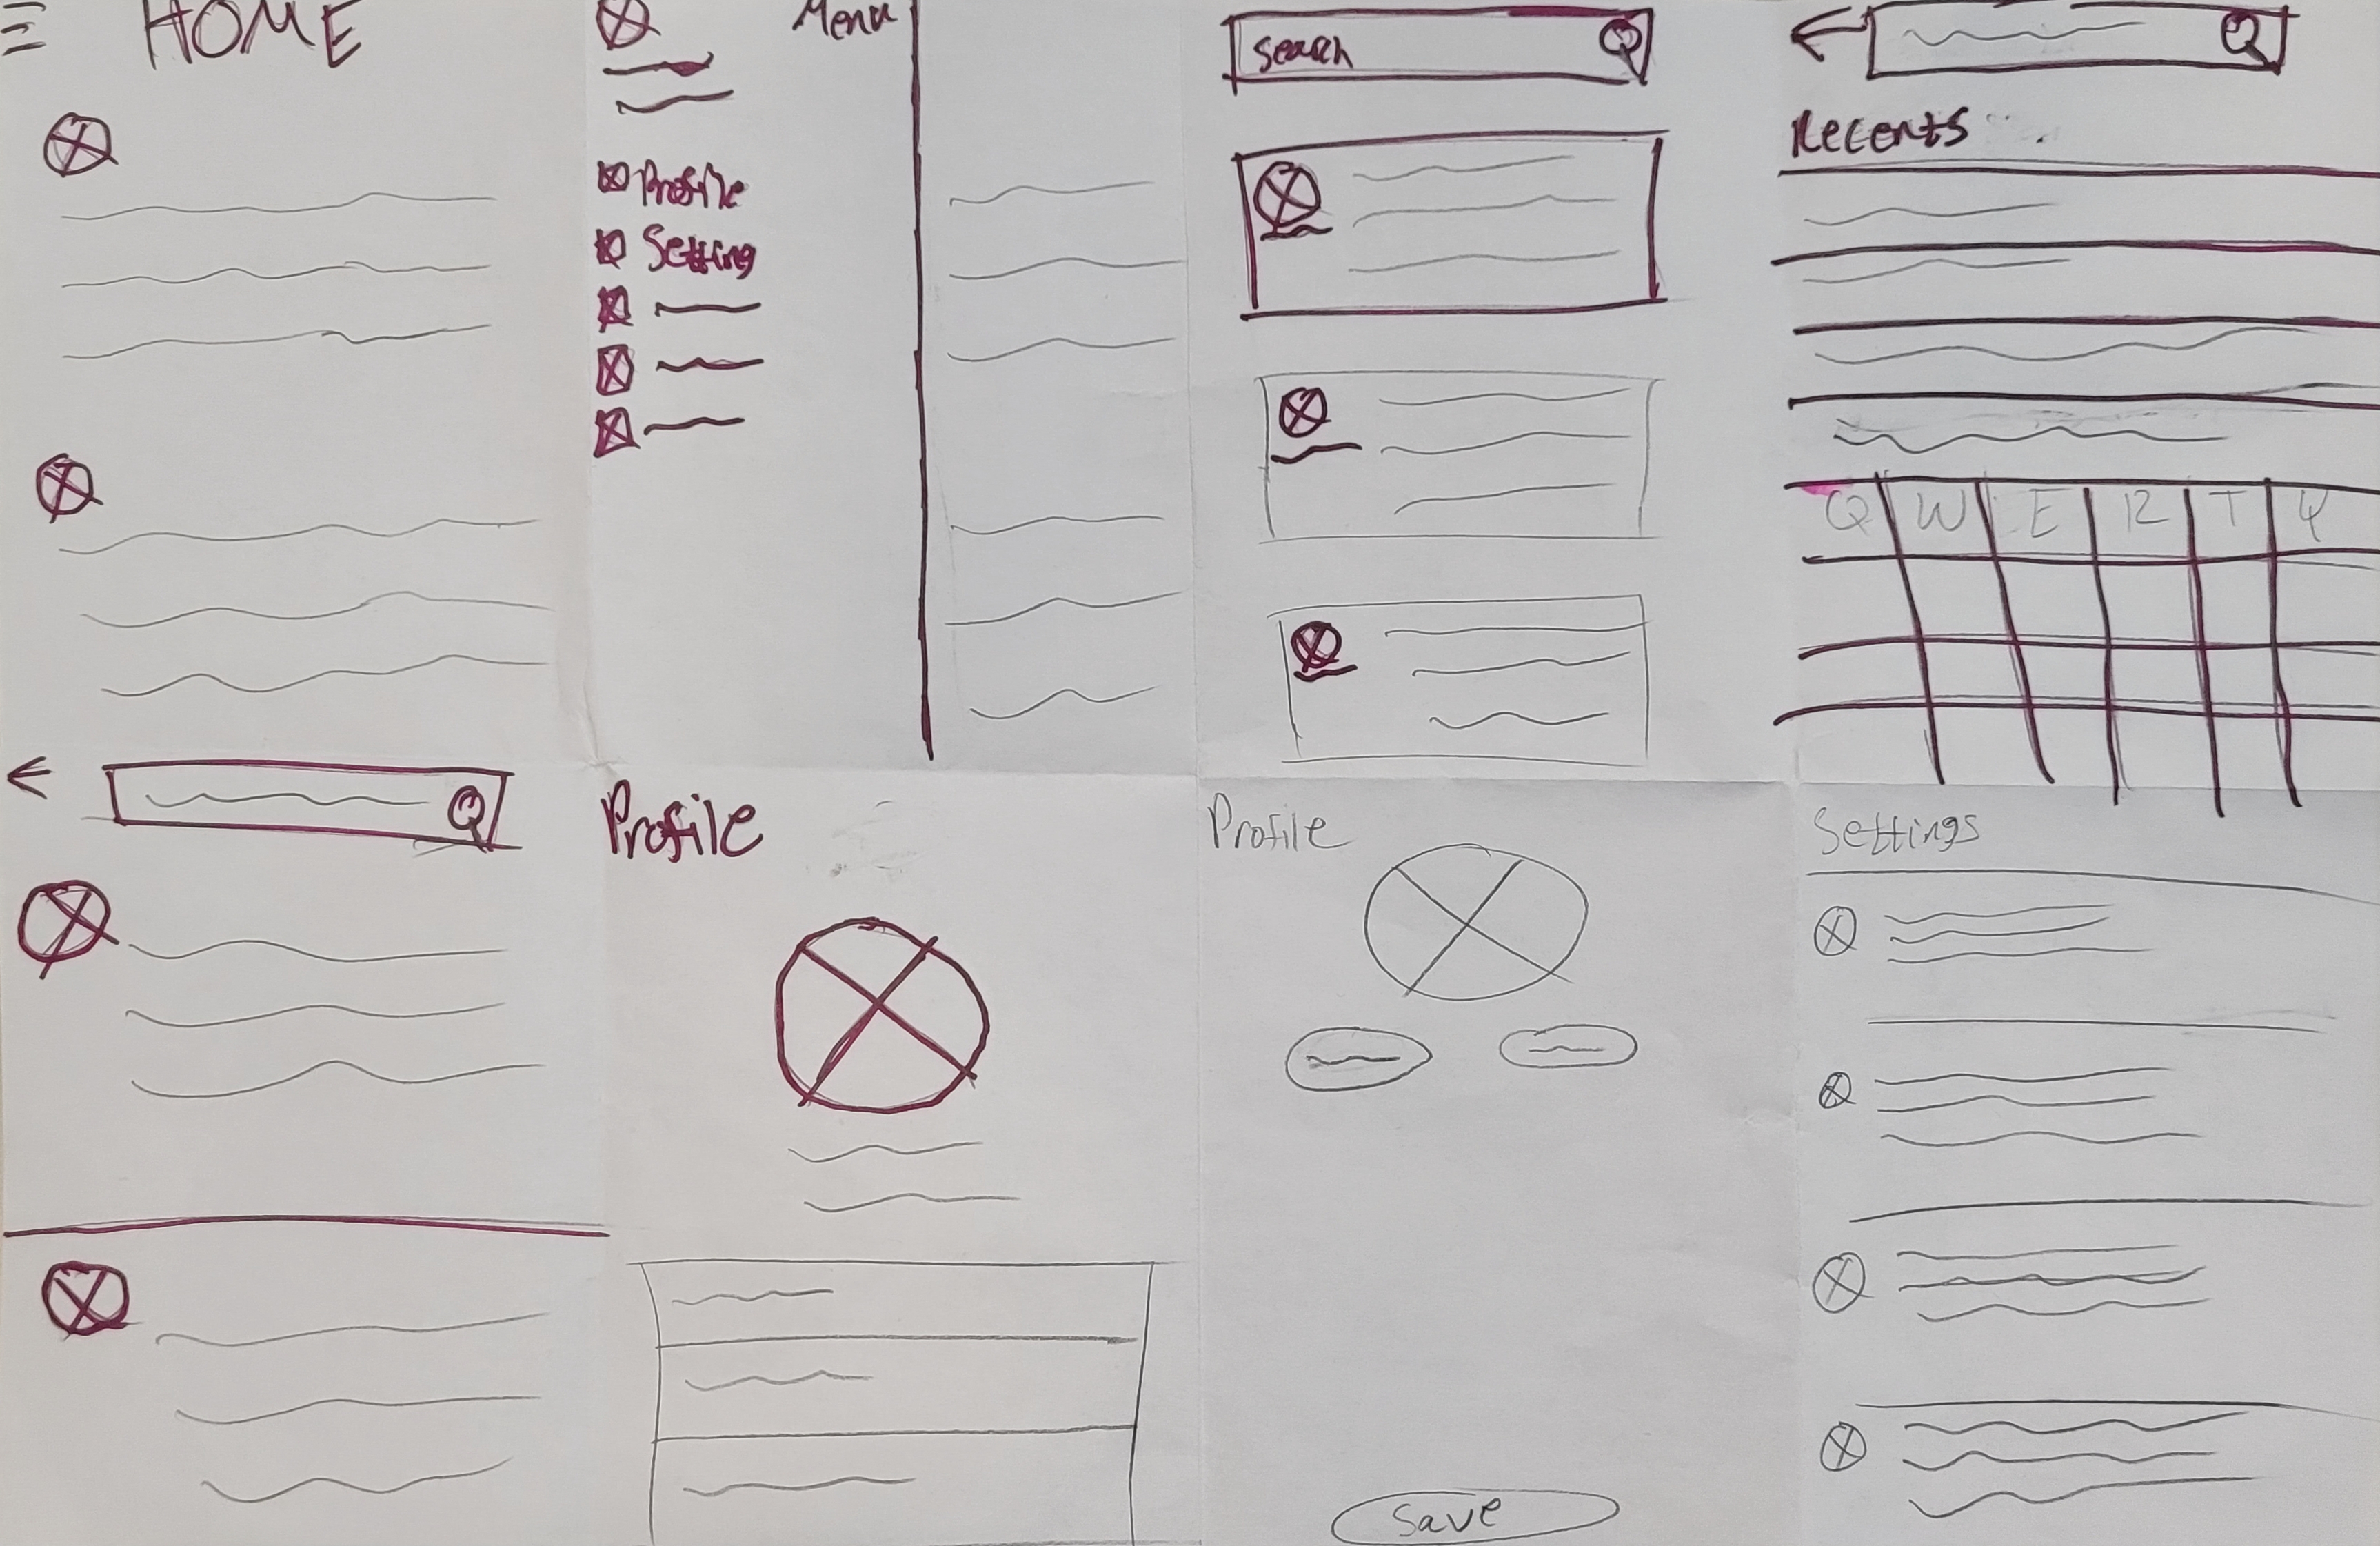 HOME
Menu
Profile
Setting
Search
Recents
Q W E R T Y
Profile
Profile
Save
Settings